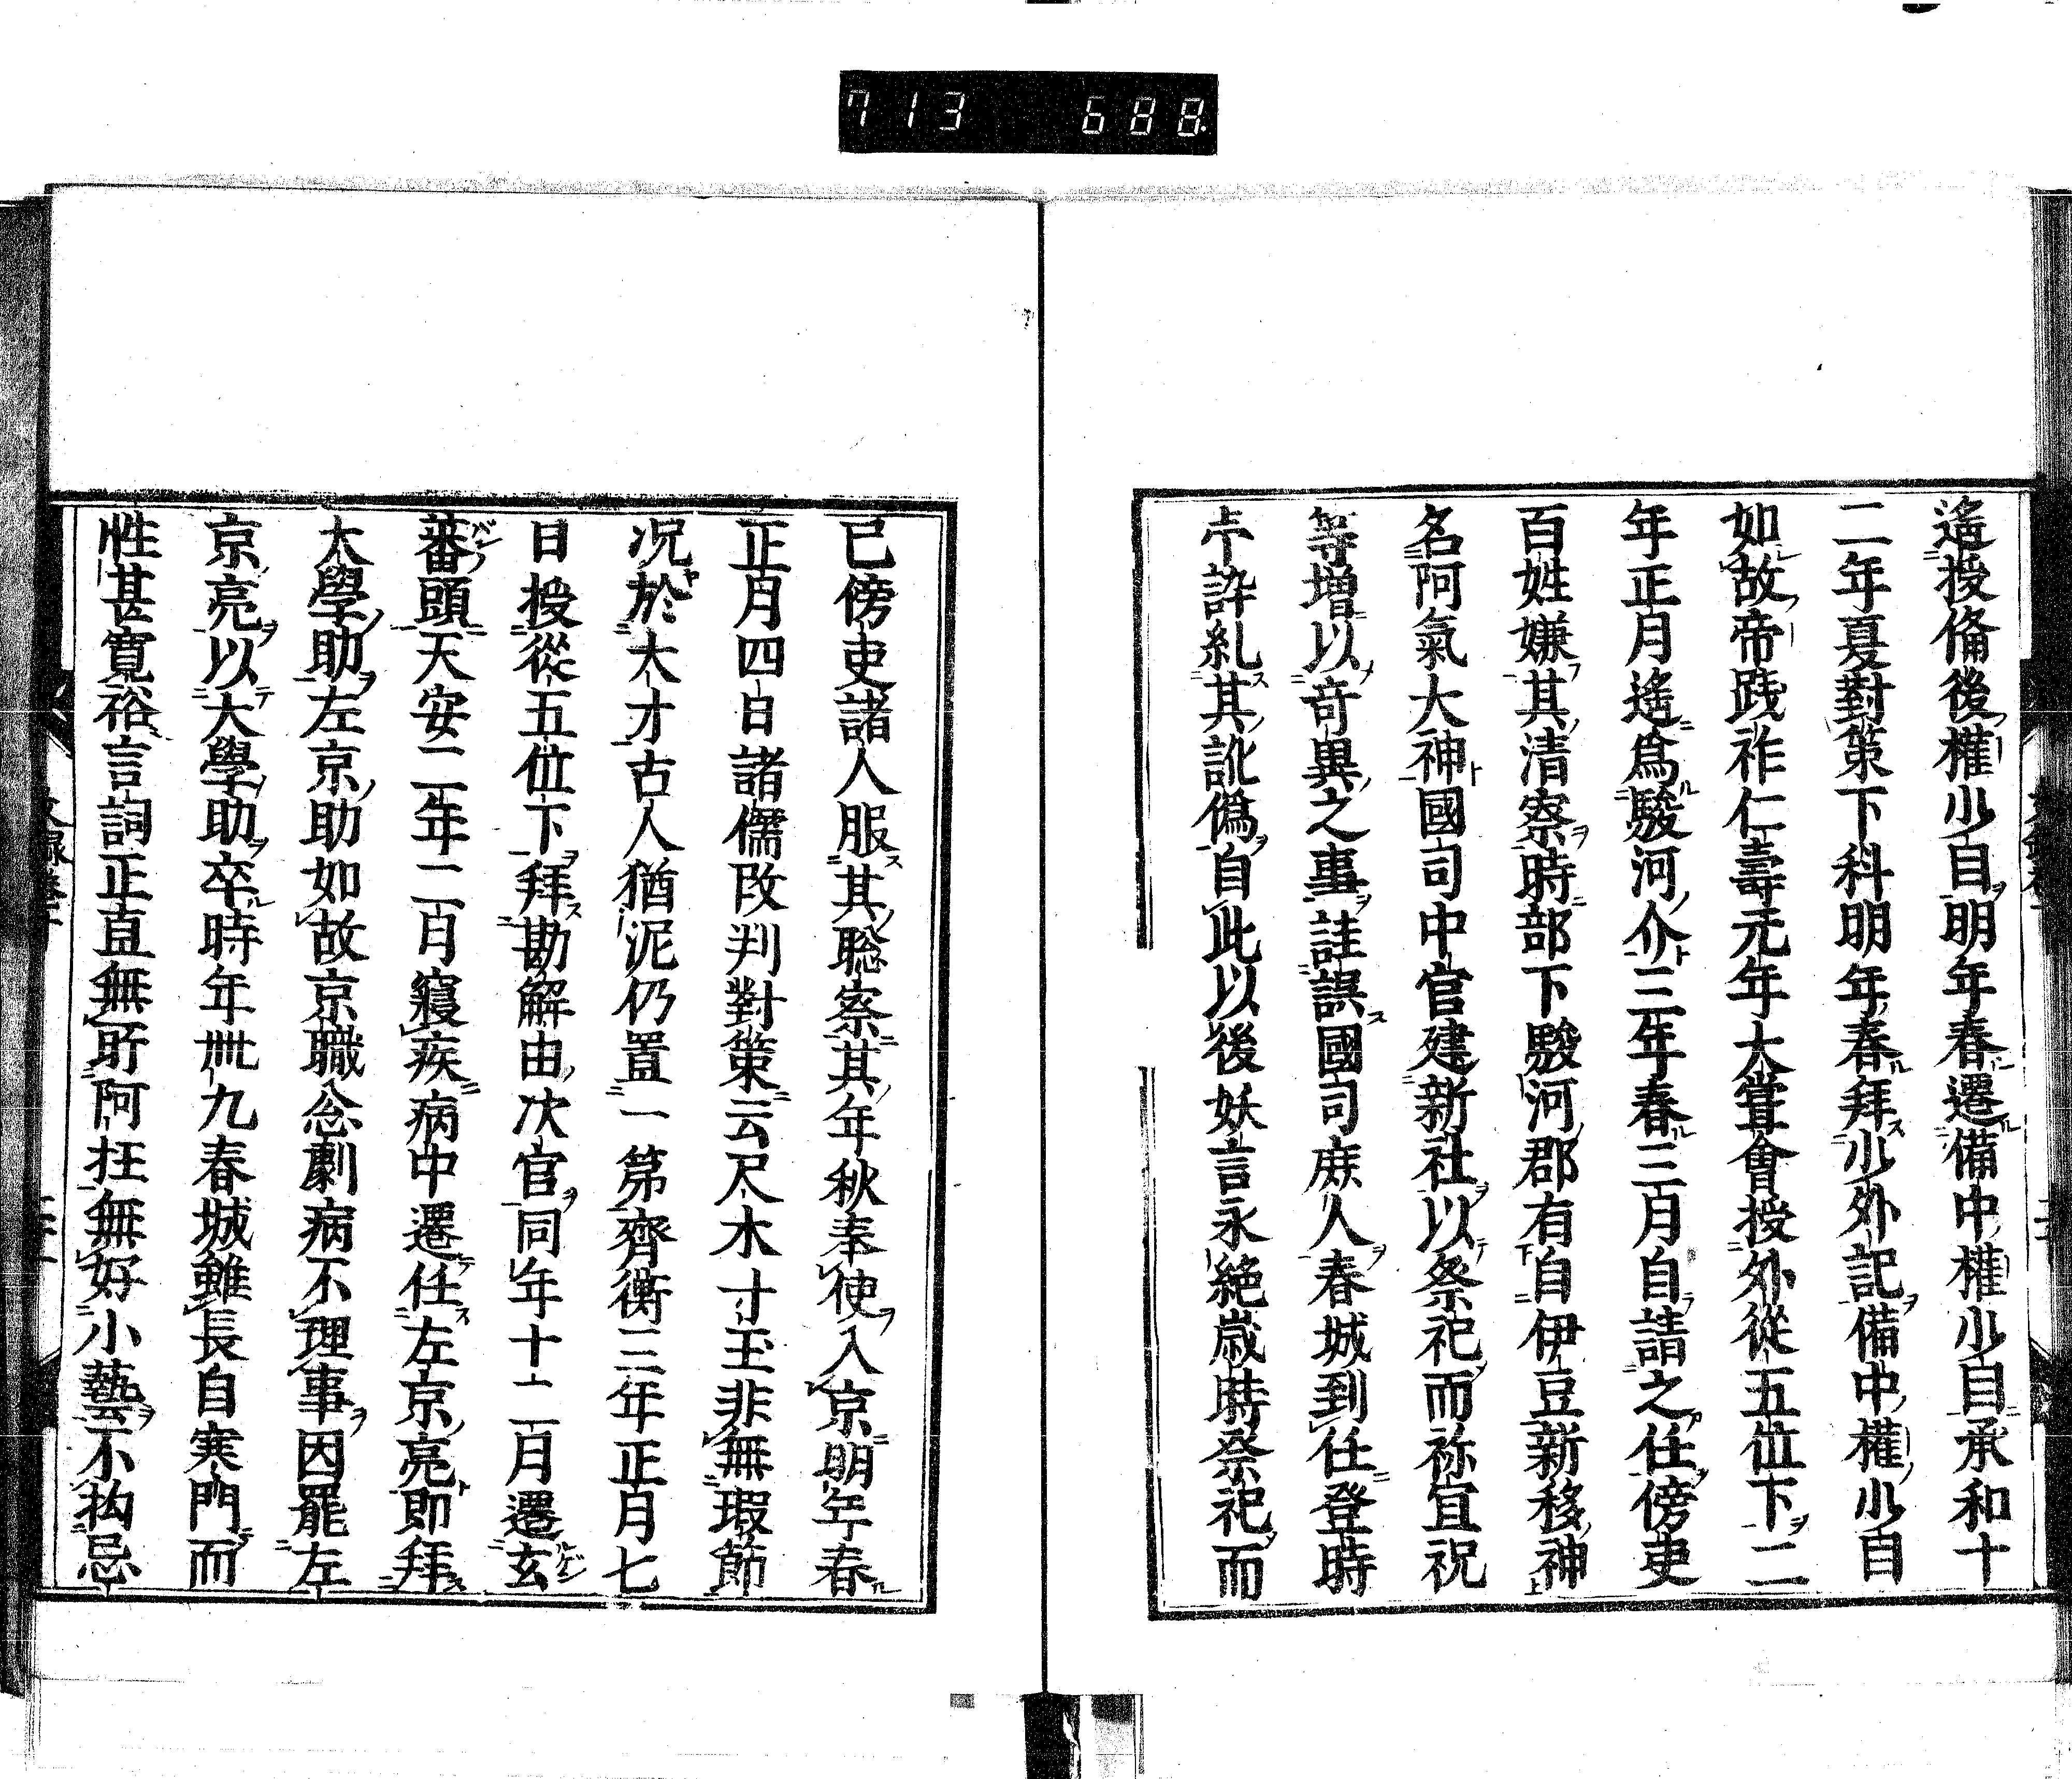 713 688
遙授俻後權少目明年春遷備中權少目承和十
二年夏對策下科明年春拜少外記備中權少目
如故帝践祚仁壽元年大甞會授外從五位下二
年正月遙爲駿河介三年春三月自請之任傍吏
百姓嫌其清察時部下駿河郡有自伊豆新移神
名阿氣大神國司中官建新社以祭祀而祢宜祝
等増以奇異之事詿誤國司庶人春城到任登時
即許糺其訛僞自此以後妖言永絶歳時祭祀而
已傍吏諸人服其聡察其年秋奉使入京明年春
正月四日諸儒改判對策云尺木寸玉非無瑕節
况於大才古人猶泥仍置一第齊衡三年正月七
日授從五位下拜勘解由次官同年十二月遷玄
蕃頭天安二年二月寢疾病中遷任左京亮即拜
大學助左京助如故京職忩劇病不理事因罷左
京亮以大學助卒時年卌九春城雖長自寒門而
性甚寛裕言詞正直無所阿抂無好小藝不拘忌